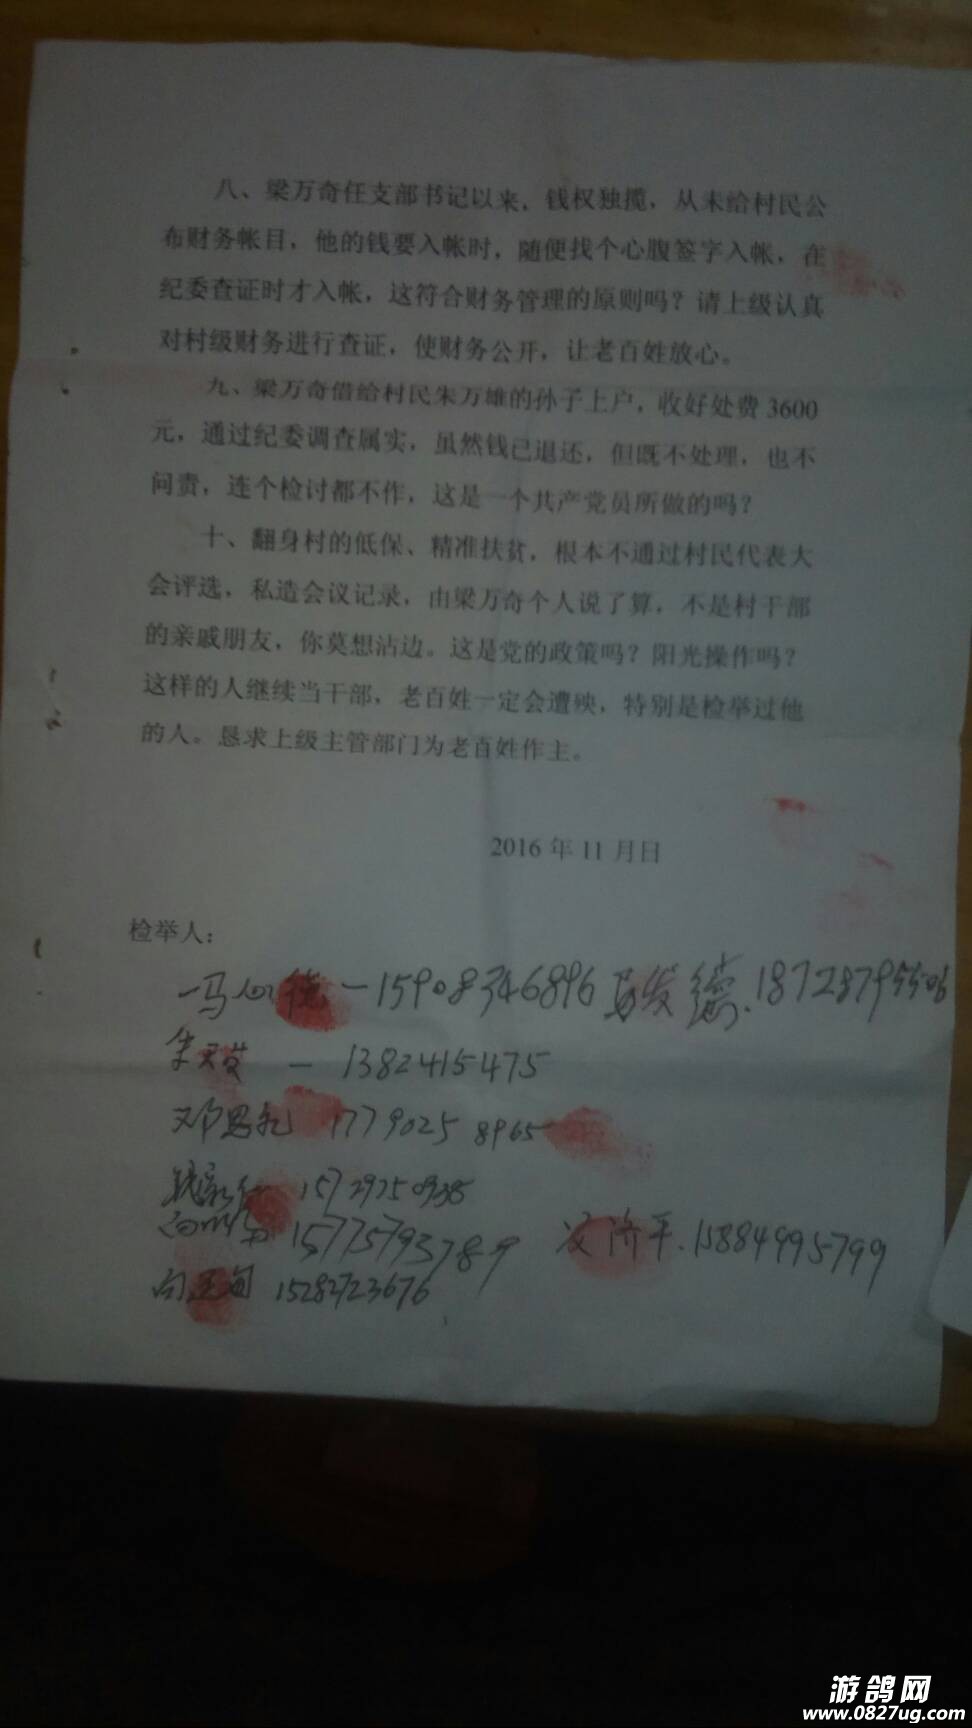 八、梁万奇任支部书记以来，钱权独揽，从未给村民公
布财务帐目，他的钱要入帐时，随便找个心腹签字入帐，在
纪委查证时才入帐，这符合财务管理的原则吗？请上级认真
对村级财务进行查证，使财务公开，让老百姓放心。
九、梁万奇借给村民朱万雄的孙子上户，收好处费 3600
元，通过纪委调查属实，虽然钱已退还，但既不处理，也不
问责，连个检讨都不作，这是一个共产党员所做的吗？
十、翻身村的低保、精准扶贫，根本不通过村民代表大
会评选，私造会议记录，由梁万奇个人说了算，不是村干部
的亲戚朋友，你莫想沾边。这是党的政策吗？阳光操作吗？
这样的人继续当干部，老百姓一定会遭殃，特别是检举过他
的人。恳求上级主管部门为老百姓作主。
2016 年 11 月日
检举人：
一马 德一15908346896 马发德.18728795506
朱 发 — 1382415475
邓思 17790258965
15729750938
15775793789 济平.15884995799
向 15282723676
游鸽网
www.0827ug.com